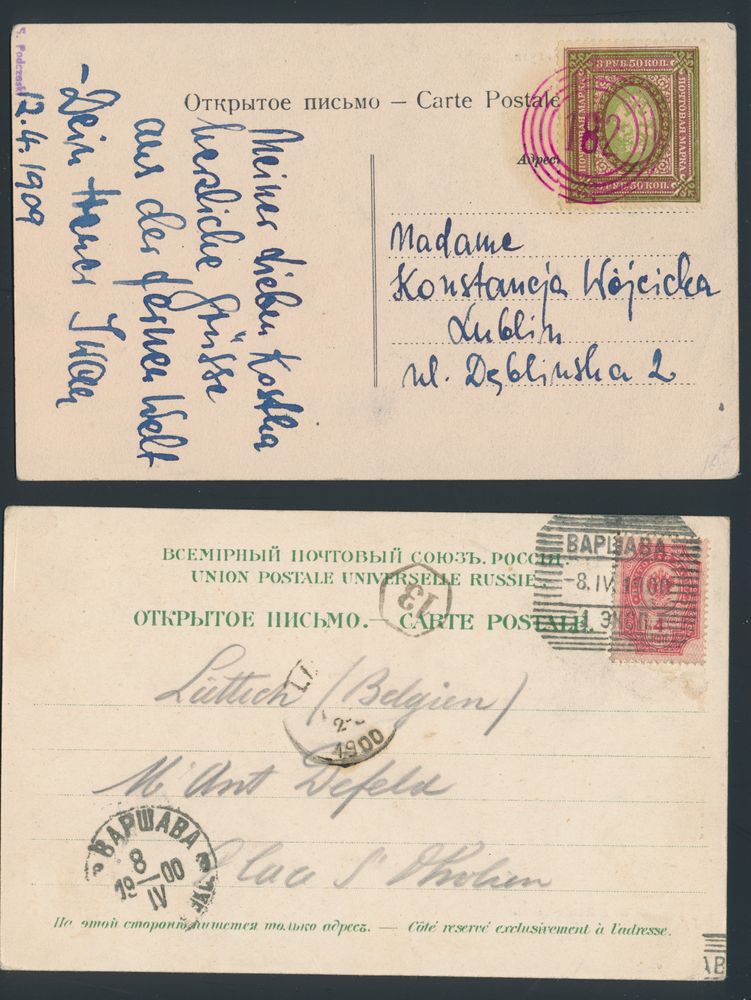 S. Podczaski
Открытое письмо — Carte Postale
3 РУБ. 50 КОП.
ПОЧТОВАЯ МАРКА
ПОЧТОВАЯ МАРКА
3 РУБ. 50 КОП.
182
Адрес:
Meiner lieben Kostka
herzliche Grüsse
aus der fernen Welt
– Dein
12.4.1909
Madame
Konstancja Wójcicka
Lublin
ul. Dęblinska 2
ВСЕМІРНЫЙ ПОЧТОВЫЙ СОЮЗЪ. РОССІЯ.
UNION POSTALE UNIVERSELLE RUSSIE.
ОТКРЫТОЕ ПИСЬМО. — CARTE POSTALE.
ВАРШАВА
-8.IV.1900
13
Lüttich (Belgien)
1900
Mr Ant Defeld
Place St
ВАРШАВА
8
19 00
IV
На этой сторонѣ пишется только адресъ. — Côté reservé exclusivement à l'adresse.
АВ